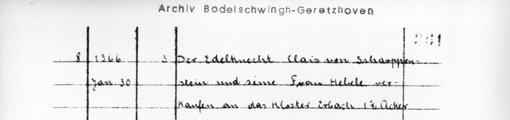 Archiv Bodelschwingh-Geretzhoven
8 1366 3 Der Edelknecht Clais von Scharppen- 201
Jan 30 stein und seine Frau Hebele ver-
kaufen an das Kloster Erbach 1½ Acker